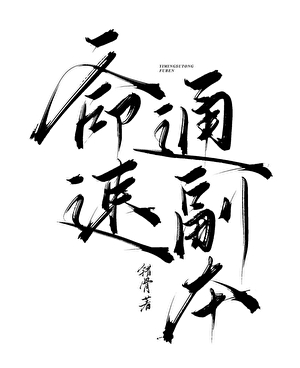 一命
速
通
副
本
YIMINGSUTONG
FUBEN
骨 著